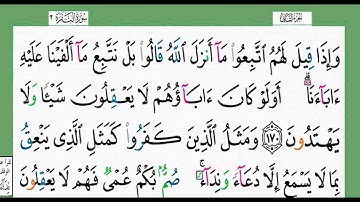 الجزء الثاني
سورة البقرة ٢
وَإِذَا قِيلَ لَهُمُ ٱتَّبِعُوا۟ مَآ أَنزَلَ ٱللَّهُ قَالُوا۟ بَلْ نَتَّبِعُ مَآ أَلْفَيْنَا عَلَيْهِ
ءَابَآءَنَآ ۗ أَوَلَوْ كَانَ ءَابَآؤُهُمْ لَا يَعْقِلُونَ شَيْـًٔا وَلَا
يَهْتَدُونَ ١٧٠ وَمَثَلُ ٱلَّذِينَ كَفَرُوا۟ كَمَثَلِ ٱلَّذِى يَنْعِقُ
بِمَا لَا يَسْمَعُ إِلَّا دُعَآءً وَنِدَآءً ۚ صُمٌّۢ بُكْمٌ عُمْىٌ فَهُمْ لَا يَعْقِلُونَ